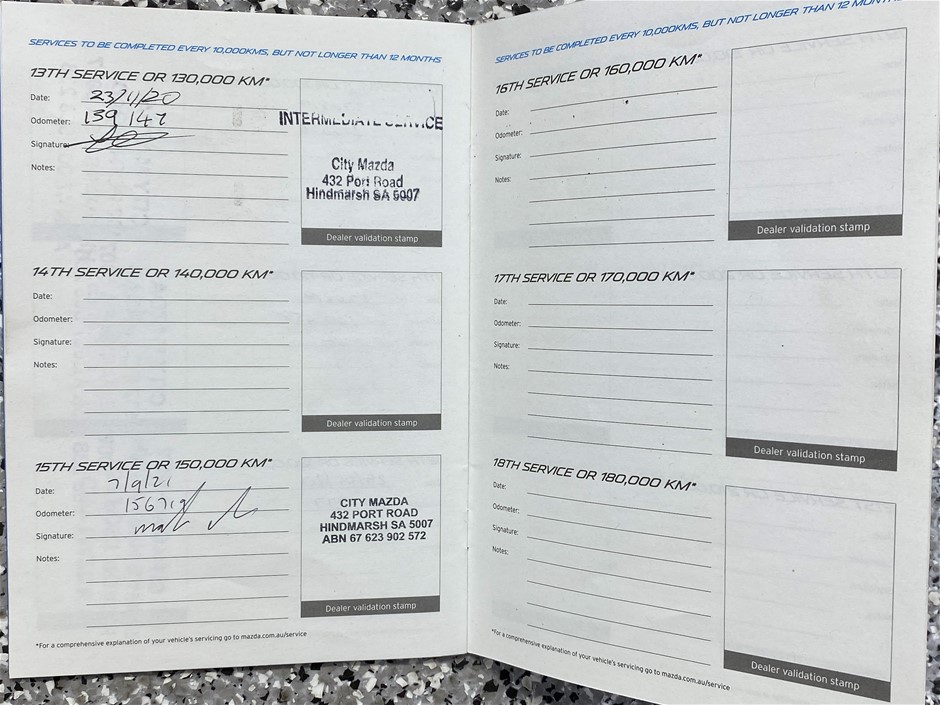 SERVICES TO BE COMPLETED EVERY 10,000KMS, BUT NOT LONGER THAN 12 MONTHS
13TH SERVICE OR 130,000 KM*
Date: 23/11/20
Odometer: 139 147
Signature:
Notes:
INTERMEDIATE SERVICE
City Mazda
432 Port Road
Hindmarsh SA 5007
Dealer validation stamp
14TH SERVICE OR 140,000 KM*
Date:
Odometer:
Signature:
Notes:
Dealer validation stamp
15TH SERVICE OR 150,000 KM*
Date: 7/9/21
Odometer: 156719
Signature:
Notes:
CITY MAZDA
432 PORT ROAD
HINDMARSH SA 5007
ABN 67 623 902 572
Dealer validation stamp
*For a comprehensive explanation of your vehicle's servicing go to mazda.com.au/service
SERVICES TO BE COMPLETED EVERY 10,000KMS, BUT NOT LONGER THAN 12 MONTHS
16TH SERVICE OR 160,000 KM*
Date:
Odometer:
Signature:
Notes:
Dealer validation stamp
17TH SERVICE OR 170,000 KM*
Date:
Odometer:
Signature:
Notes:
Dealer validation stamp
18TH SERVICE OR 180,000 KM*
Date:
Odometer:
Signature:
Notes:
Dealer validation stamp
*For a comprehensive explanation of your vehicle's servicing go to mazda.com.au/service